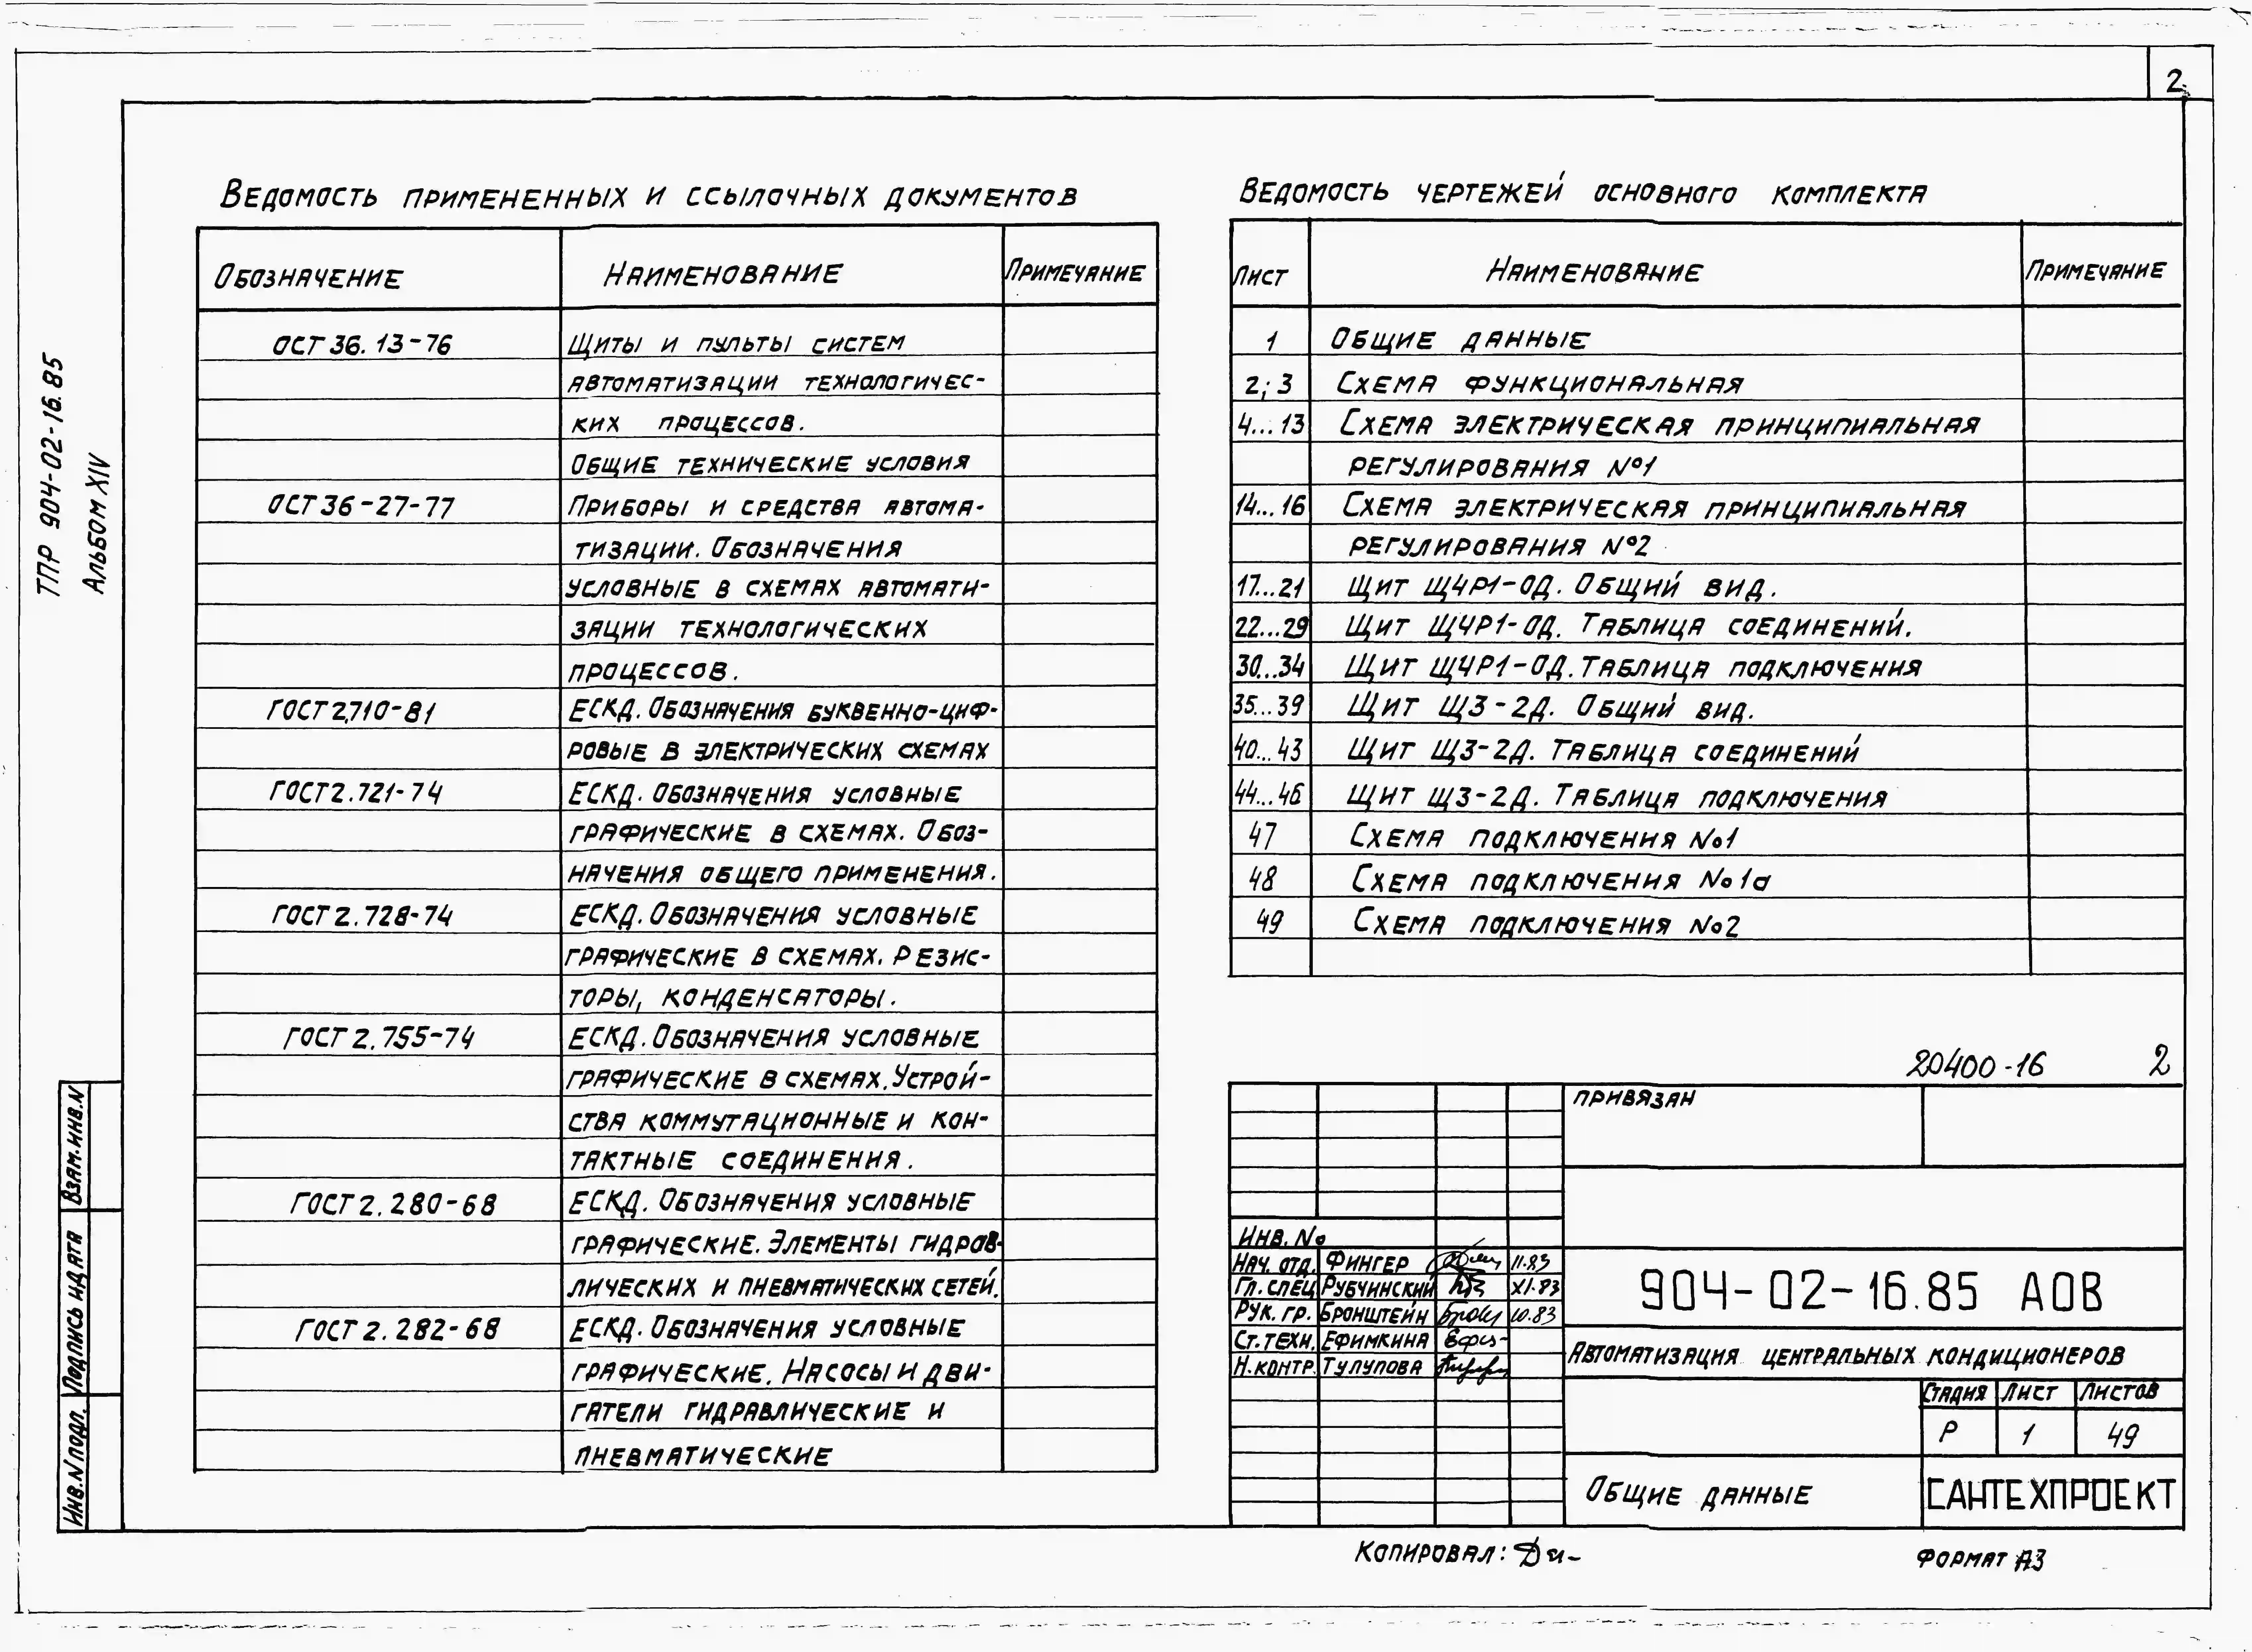 2
ТПР 904-02-16.85
Альбом XIV
Ведомость примененных и ссылочных документов
Обозначение Наименование Примечание
ОСТ 36.13-76 Щиты и пульты систем
автоматизации технологичес-
ких процессов.
Общие технические условия
ОСТ 36-27-77 Приборы и средства автома-
тизации. Обозначения
условные в схемах автомати-
зации технологических
процессов.
ГОСТ 2.710-81 ЕСКД. Обозначения буквенно-циф-
ровые в электрических схемах
ГОСТ 2.721-74 ЕСКД. Обозначения условные
графические в схемах. Обоз-
начения общего применения.
ГОСТ 2.728-74 ЕСКД. Обозначения условные
графические в схемах. Резис-
торы, конденсаторы.
ГОСТ 2.755-74 ЕСКД. Обозначения условные
графические в схемах. Устрой-
ства коммутационные и кон-
тактные соединения.
ГОСТ 2.280-68 ЕСКД. Обозначения условные
графические. Элементы гидрав-
лических и пневматических сетей.
ГОСТ 2.282-68 ЕСКД. Обозначения условные
графические. Насосы и дви-
гатели гидравлические и
пневматические
Ведомость чертежей основного комплекта
Лист Наименование Примечание
1 Общие данные
2; 3 Схема функциональная
4...13 Схема электрическая принципиальная
регулирования №1
14...16 Схема электрическая принципиальная
регулирования №2
17...21 Щит ЩЧР1-ОД. Общий вид.
22...29 Щит ЩЧР1-ОД. Таблица соединений.
30...34 Щит ЩЧР1-ОД. Таблица подключения
35...39 Щит ЩЗ-2Д. Общий вид.
40...43 Щит ЩЗ-2Д. Таблица соединений
44...46 Щит ЩЗ-2Д. Таблица подключения
47 Схема подключения №1
48 Схема подключения №1а
49 Схема подключения №2
20400-16 2
Привязан
Инв. №
Нач. отд. Фингер 11.83
Гл. спец Рубчинский XI.83
Рук. гр. Бронштейн 10.83
Ст. техн. Ефимкина
Н. контр. Тулупова
904-02-16.85 АОВ
Автоматизация центральных кондиционеров
Стадия Лист Листов
Р 1 49
Общие данные
САНТЕХПРОЕКТ
Взам. инв. N
Подпись и дата
Инв. N подл.
Копировал:
Формат А3